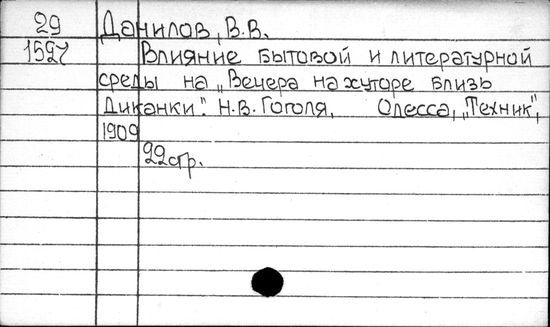 29 Данилов, В.В.
1527 Влияние бытовой и литературной
среды на „Вечера на хуторе близь
Диканки". Н.В. Гоголя, Одесса, „Техник",
1909
22 стр.